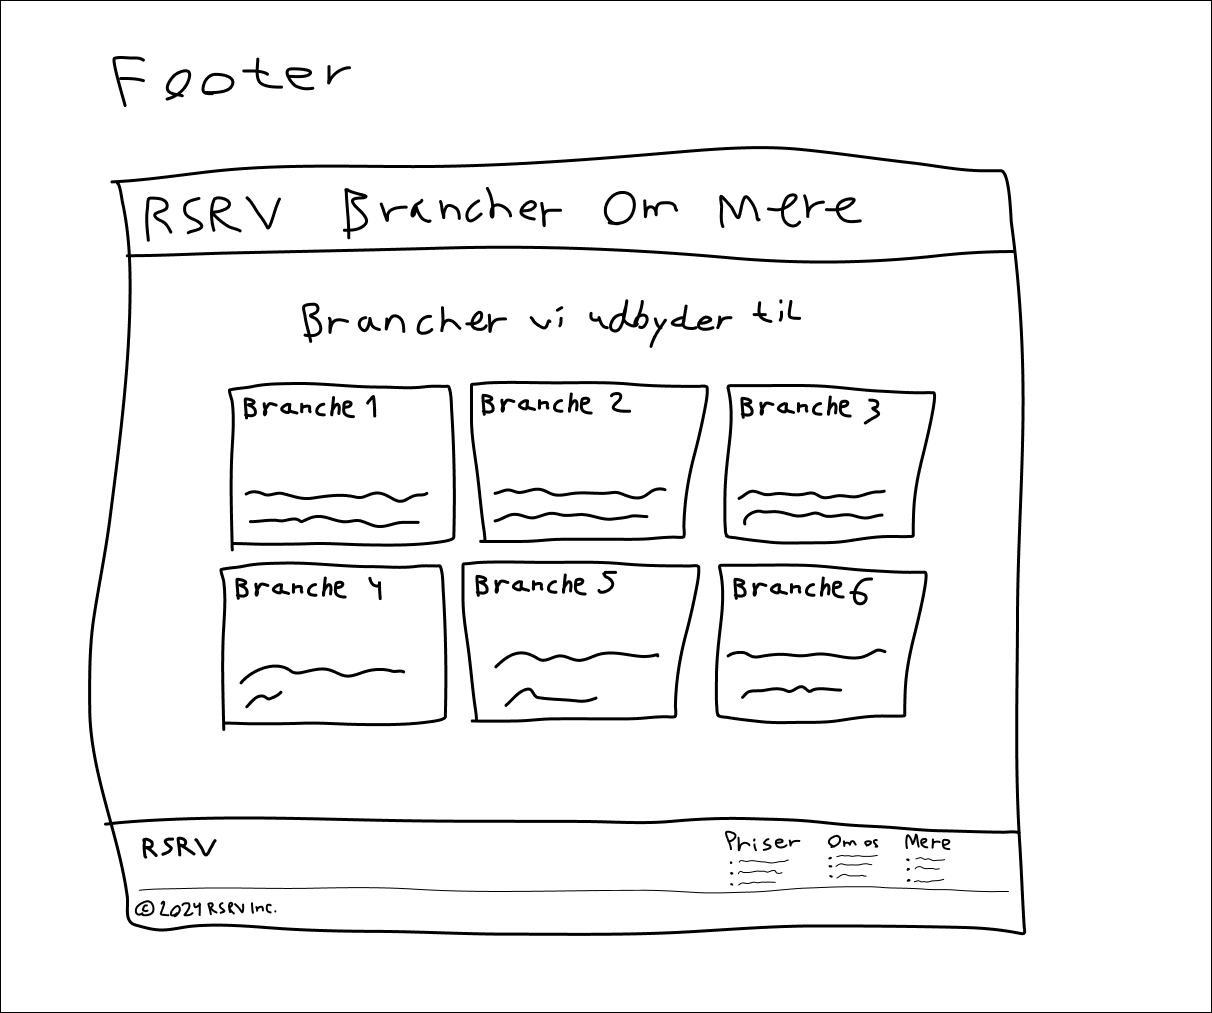 Footer
RSRV Brancher Om Mere
Brancher vi udbyder til
Branche 1 Branche 2 Branche 3
Branche 4 Branche 5 Branche 6
RSRV Priser Om os Mere
© 2024 RSRV Inc.